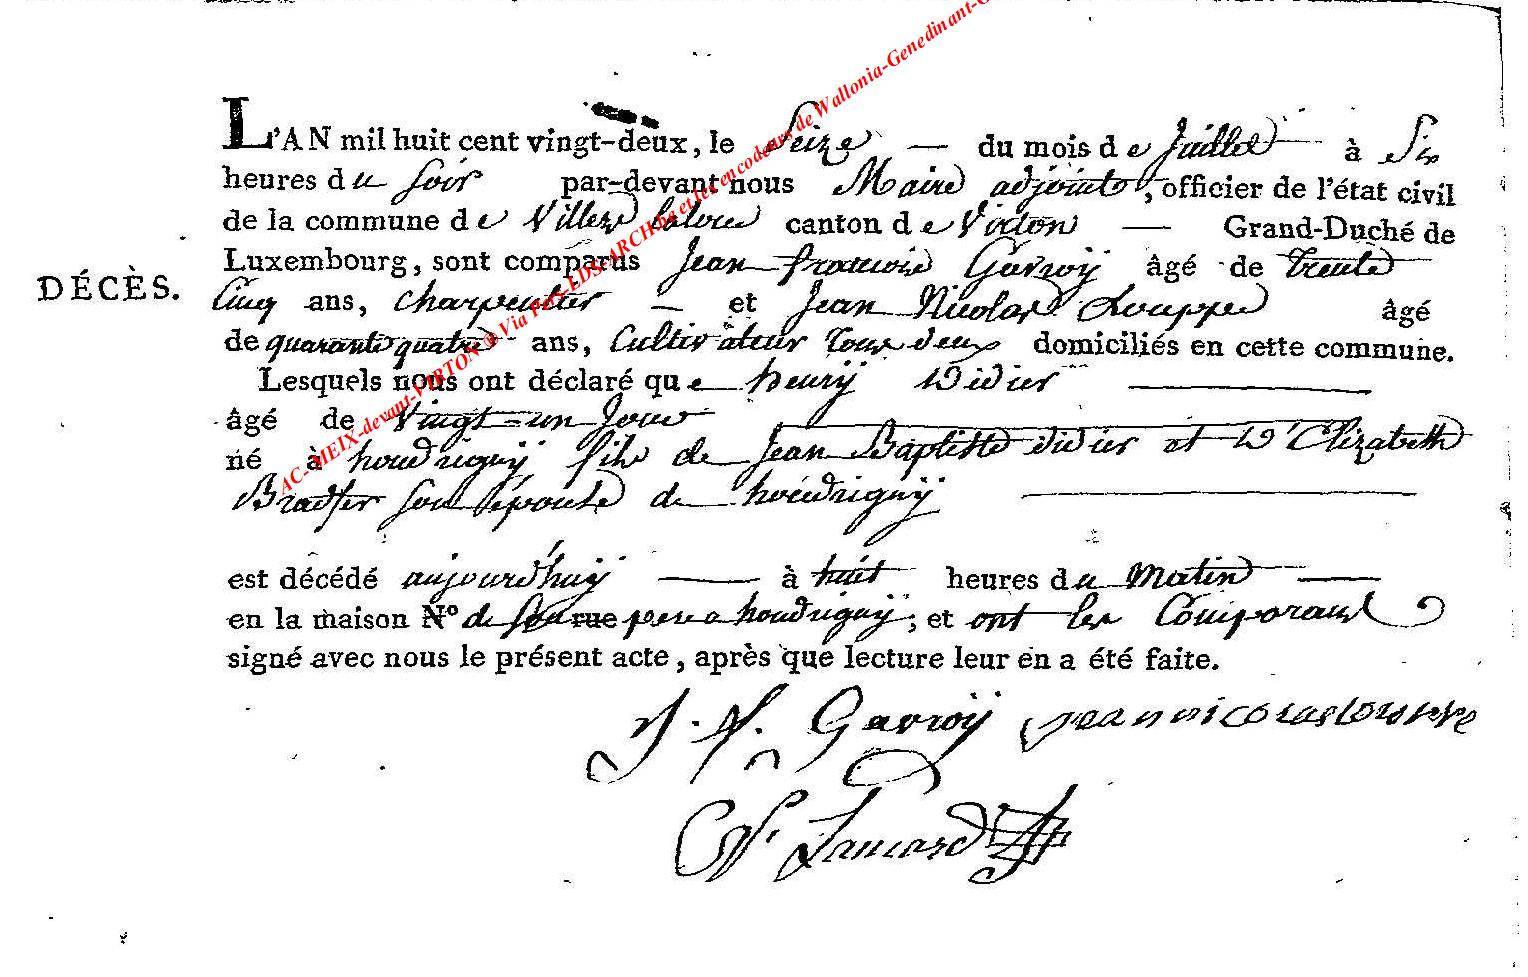 AC-MEIX-devant-VIRTON @ Via FAS-LDS-ARCH.be et les encodeurs de Wallonia-Genedinant-G
L'AN mil huit cent vingt-deux, le Seize — du mois de Juillet à Six
heures du soir par-devant nous Maire adjoint, officier de l'état civil
de la commune de Villers laloue canton de Virton — Grand-Duché de
DÉCÈS.
Luxembourg, sont comparus Jean francois Gavroÿ âgé de trente
Cinq ans, Charpentier — et Jean Nicolas Louppe âgé
de quarante quatre ans, Cultivateur tous deux domiciliés en cette commune.
Lesquels nous ont déclaré que henrÿ Didier
âgé de Vingt-un Jour
né à houdrignÿ fils de Jean Baptiste didier et D'Elizabeth
son épouse de houdrignÿ
est décédé aujourd'huÿ — à huit heures du Matin —
en la maison N° de son rue pere a houdrignÿ; et ont les Comparant
signé avec nous le présent acte, après que lecture leur en a été faite.
J. f. Gavroÿ jean nicolas louppe